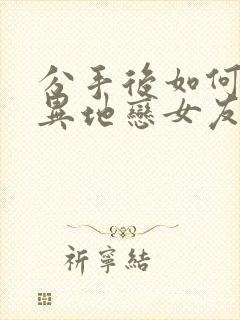 分手後如何
異地戀女友
祈寧結